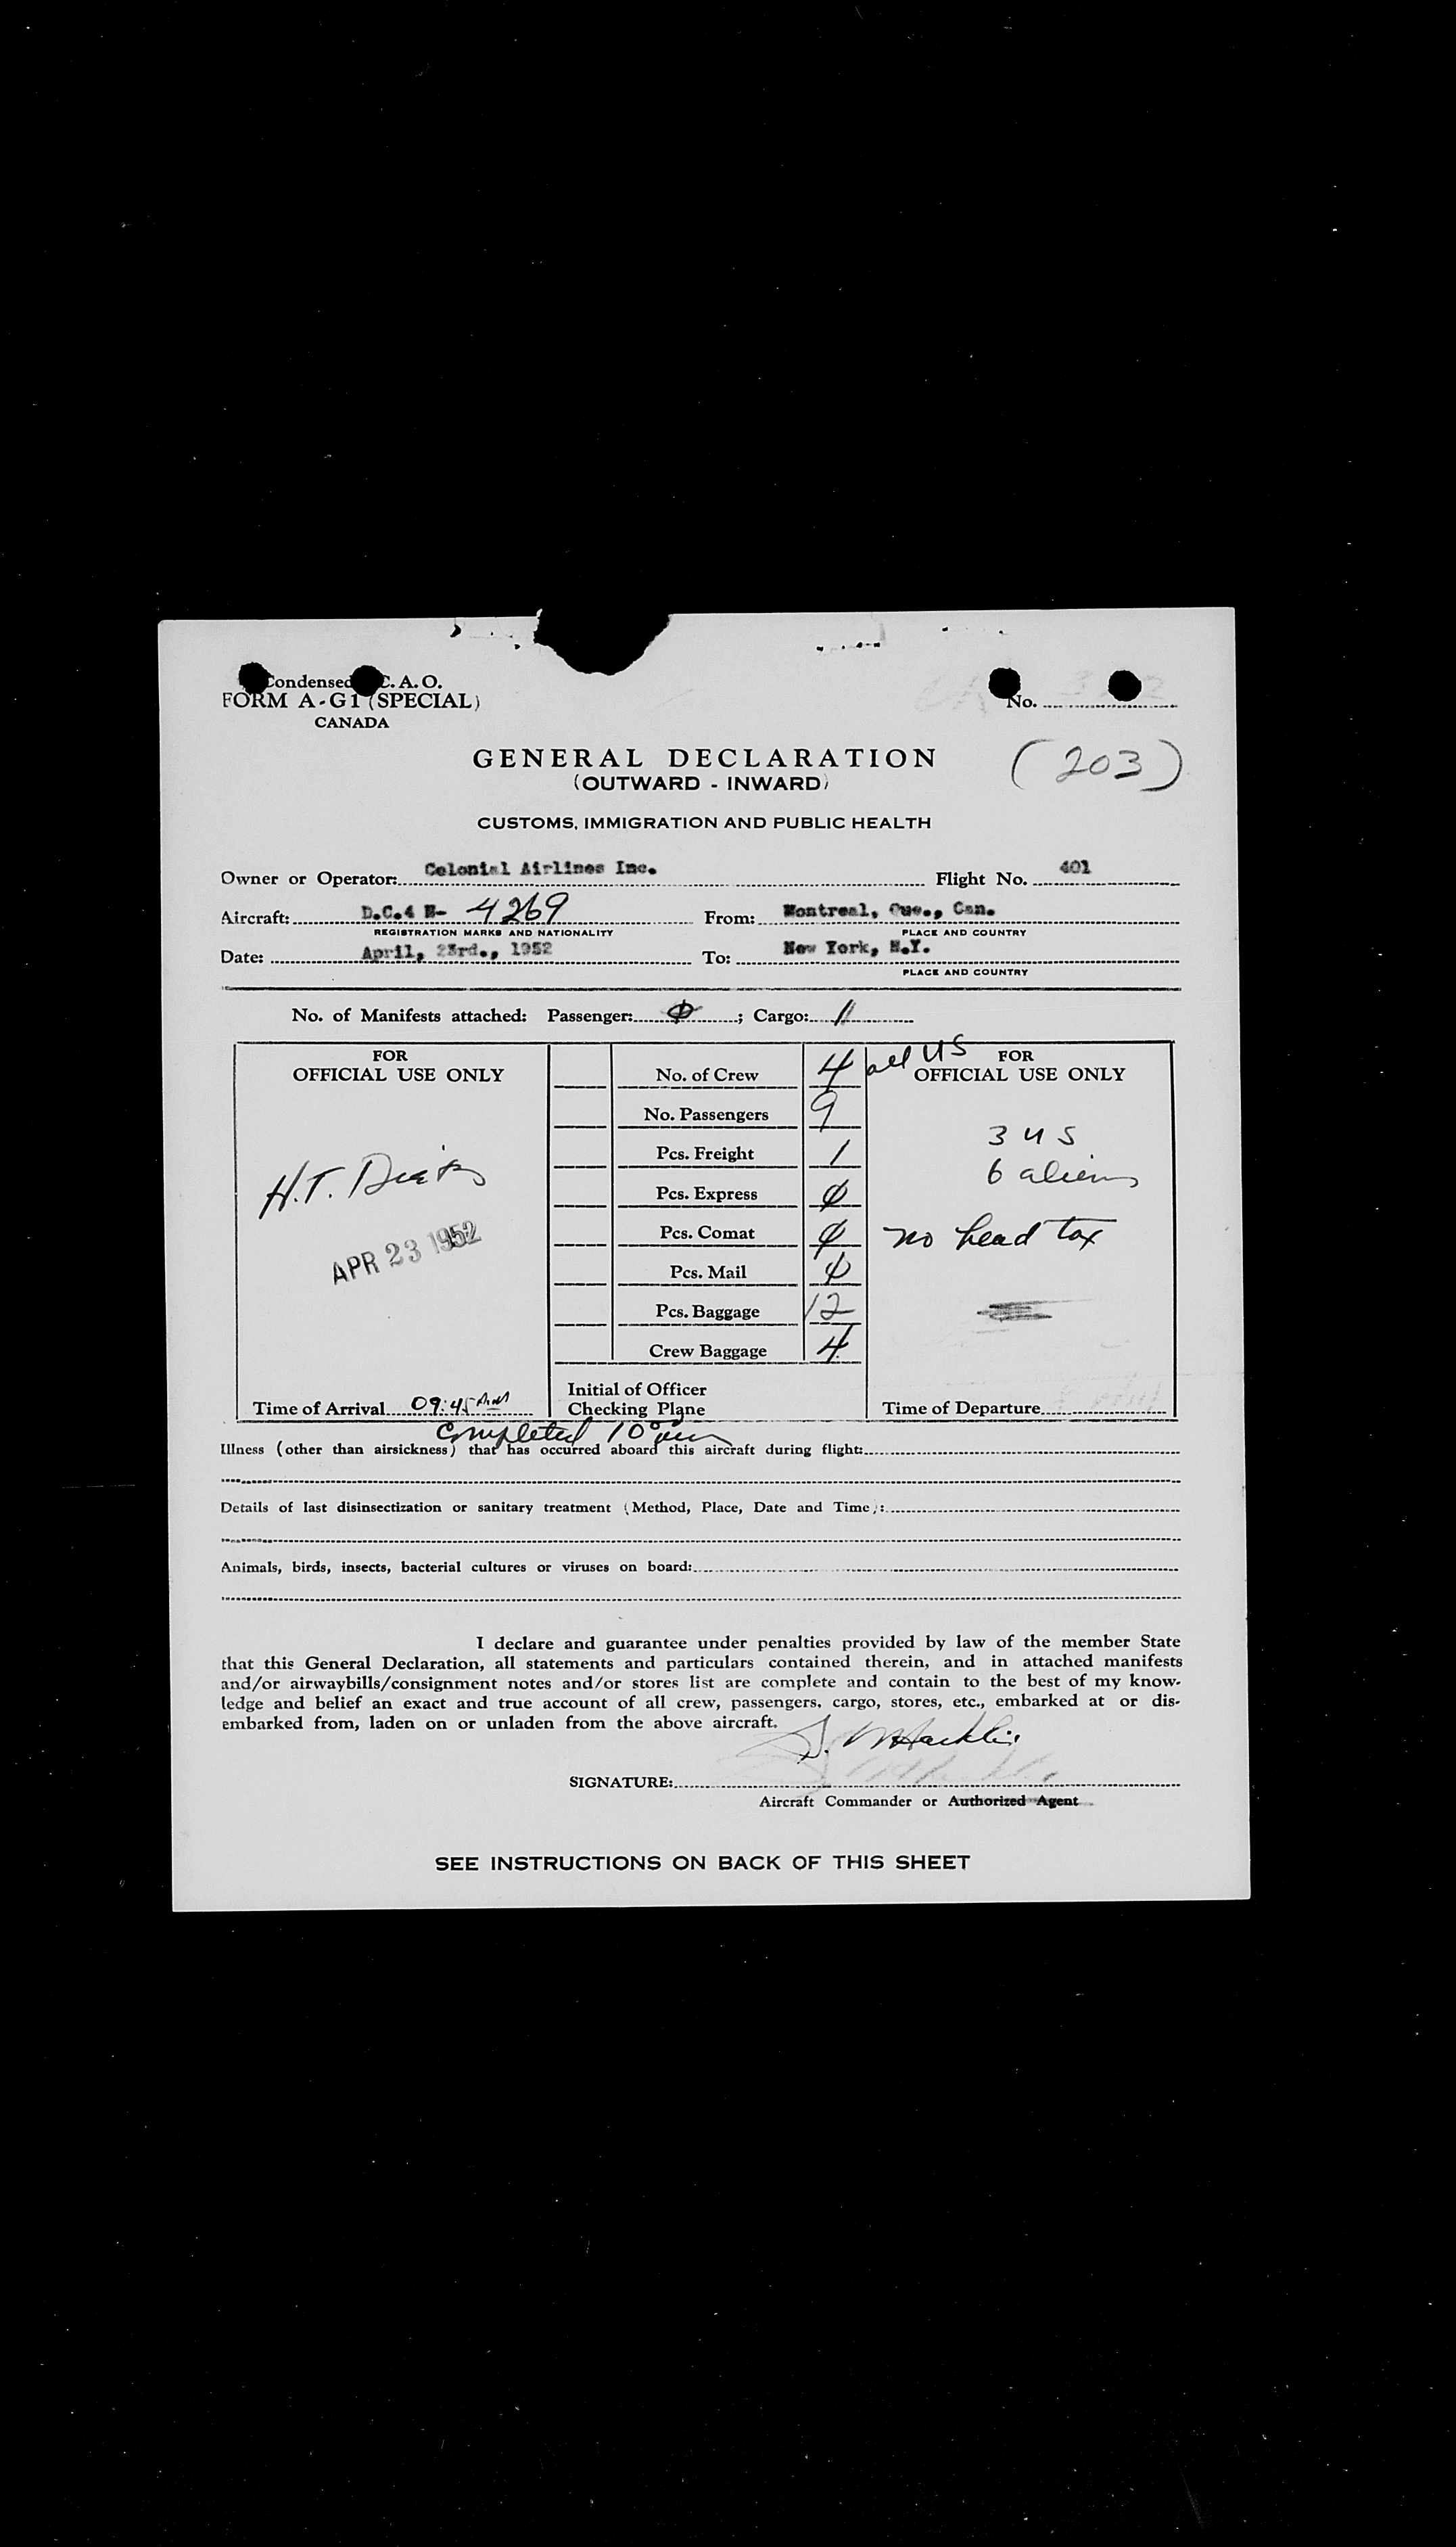 Condensed C. A. O.
FORM A-G1 (SPECIAL)
CANADA
No.
(203)
GENERAL DECLARATION
(OUTWARD - INWARD)
CUSTOMS, IMMIGRATION AND PUBLIC HEALTH
Owner or Operator: Colonial Airlines Inc. Flight No. 401
Aircraft: D.C.4 N- 4269 From: Montreal, Que., Can.
REGISTRATION MARKS AND NATIONALITY PLACE AND COUNTRY
Date: April, 23rd., 1952 To: New York, N.Y.
PLACE AND COUNTRY
No. of Manifests attached: Passenger: 0 ; Cargo: 1
FOR
OFFICIAL USE ONLY
H.T.
APR 23 1952
Time of Arrival 09:45 AM
Completed 10 00 am
No. of Crew 4 all US
No. Passengers 9
Pcs. Freight 1
Pcs. Express 0
Pcs. Comat 0
Pcs. Mail 0
Pcs. Baggage 12
Crew Baggage 4
Initial of Officer
Checking Plane
FOR
OFFICIAL USE ONLY
3 US
6 aliens
no head tax
Time of Departure
Illness (other than airsickness) that has occurred aboard this aircraft during flight:
Details of last disinsectization or sanitary treatment (Method, Place, Date and Time):
Animals, birds, insects, bacterial cultures or viruses on board:
I declare and guarantee under penalties provided by law of the member State
that this General Declaration, all statements and particulars contained therein, and in attached manifests
and/or airwaybills/consignment notes and/or stores list are complete and contain to the best of my know-
ledge and belief an exact and true account of all crew, passengers, cargo, stores, etc., embarked at or dis-
embarked from, laden on or unladen from the above aircraft.
SIGNATURE:
Aircraft Commander or Authorized Agent
SEE INSTRUCTIONS ON BACK OF THIS SHEET